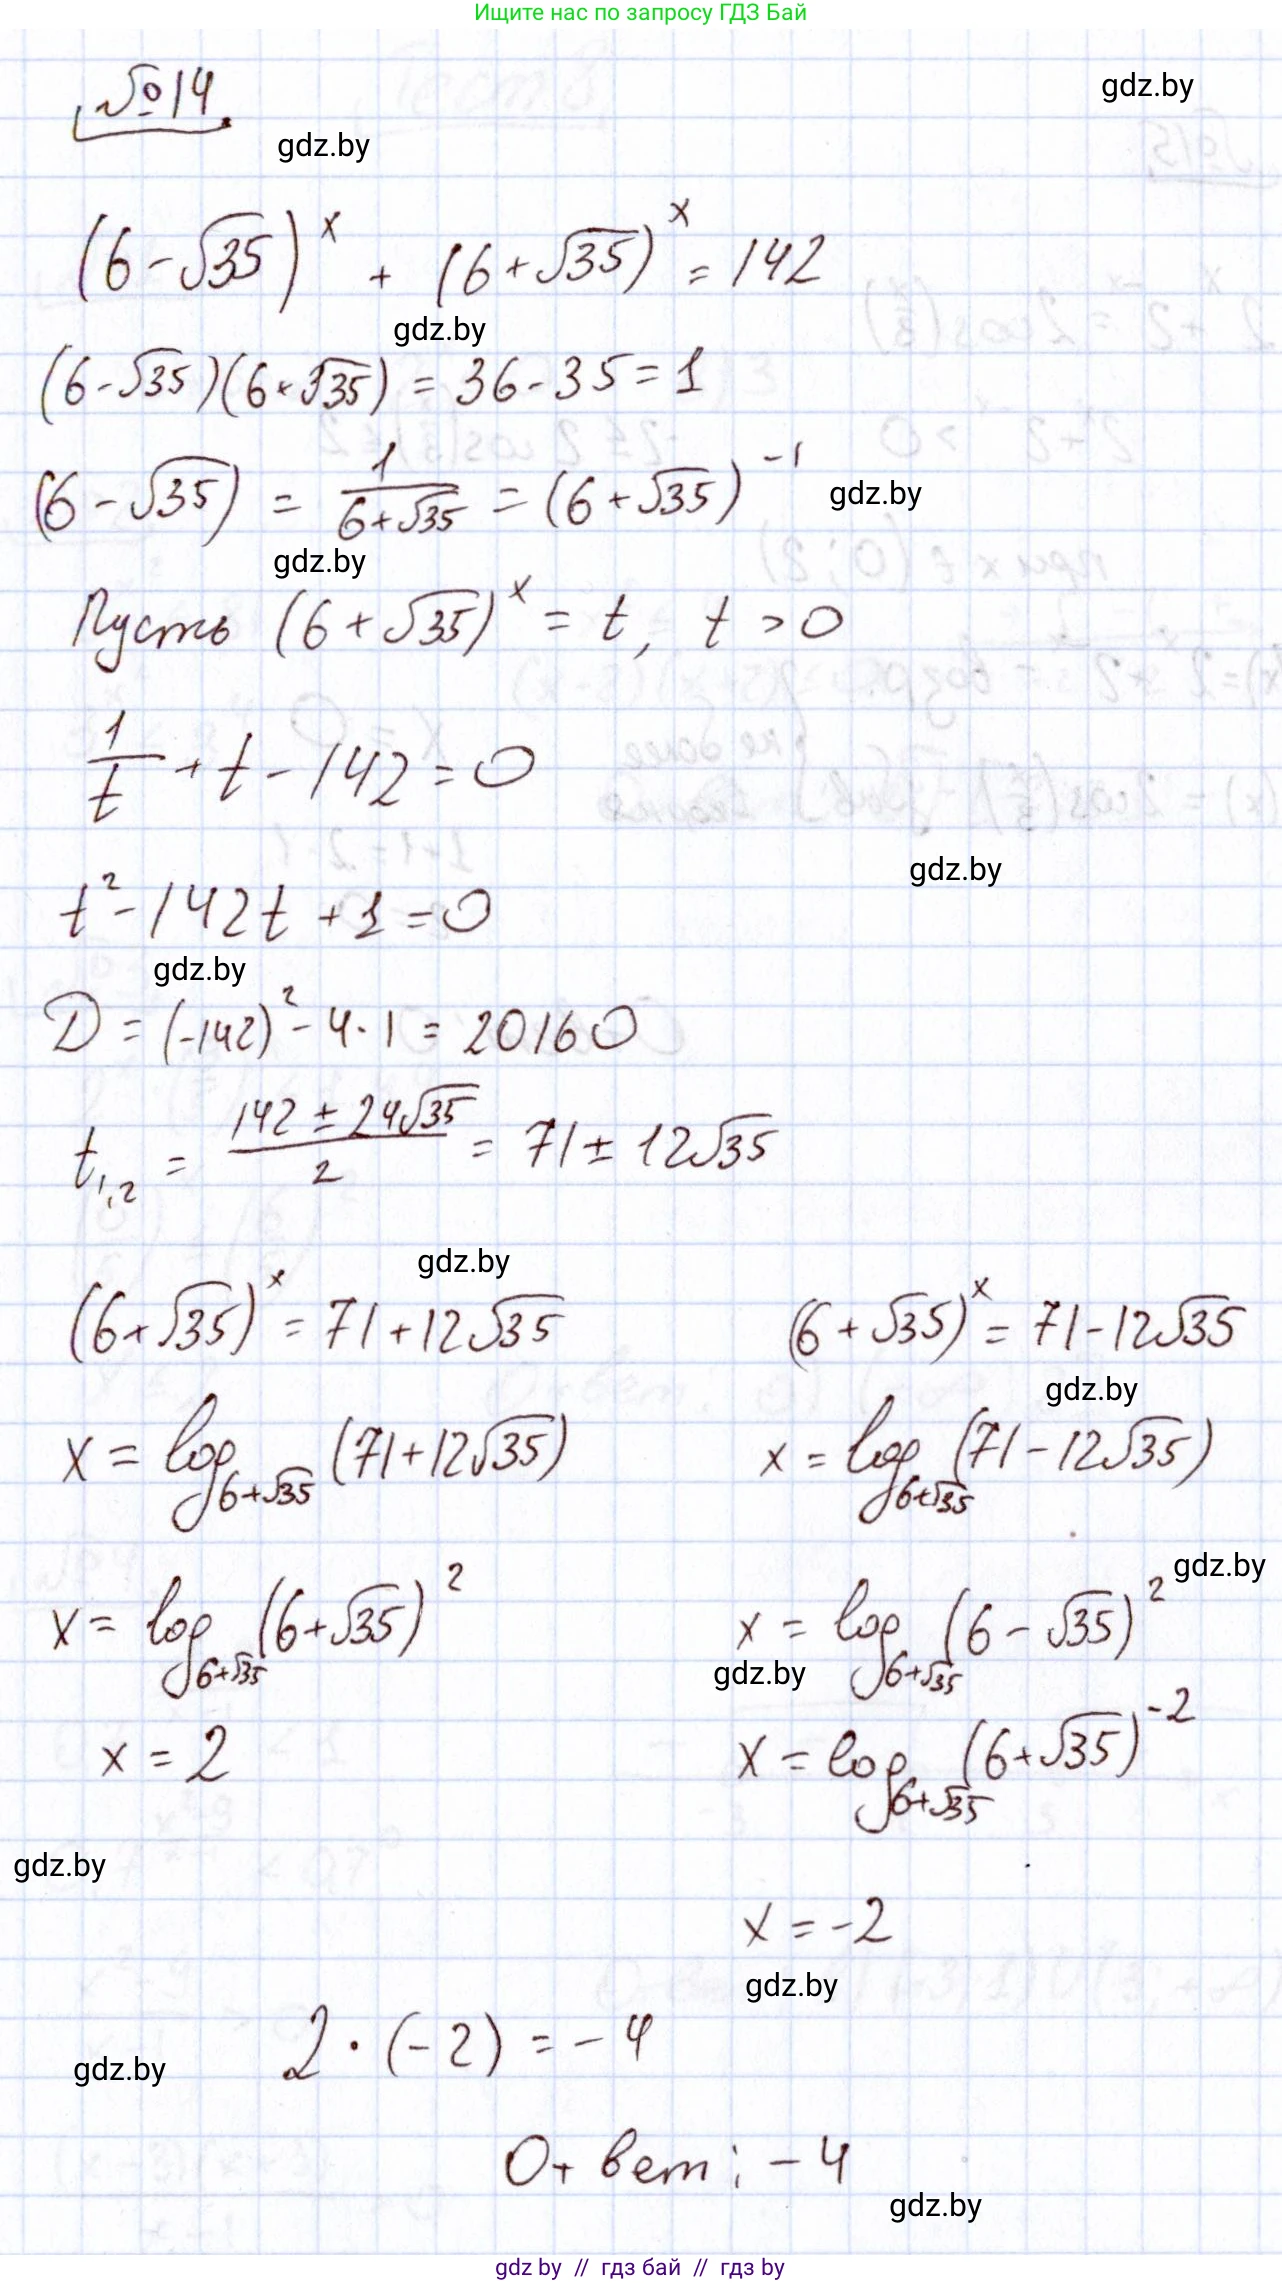 Ищите нас по запросу ГДЗ Бай
№14
gdz.by
gdz.by
(6-√35)^x + (6+√35)^x = 142
gdz.by
(6-√35)(6+√35) = 36-35=1
(6-√35) = 1/(6+√35) = (6+√35)^-1
gdz.by
gdz.by
Пусть (6+√35)^x = t, t>0
1/t + t - 142 = 0
gdz.by
t²-142t+1=0
gdz.by
D = (-142)² - 4·1 = 20160
t1,2 = (142 ± 24√35)/2 = 71 ± 12√35
gdz.by
(6+√35)^x = 71+12√35 (6+√35)^x = 71-12√35
gdz.by
x = log_6+√35 (71+12√35) x = log_6+√35 (71-12√35)
gdz.by
x = log_6+√35 (6+√35)² x = log_6+√35 (6-√35)²
gdz.by
x = 2 x = log_6+√35 (6+√35)^-2
gdz.by
x = -2
gdz.by
2·(-2) = -4
gdz.by
Ответ: -4
gdz.by
gdz by // гдз бай // гдз by